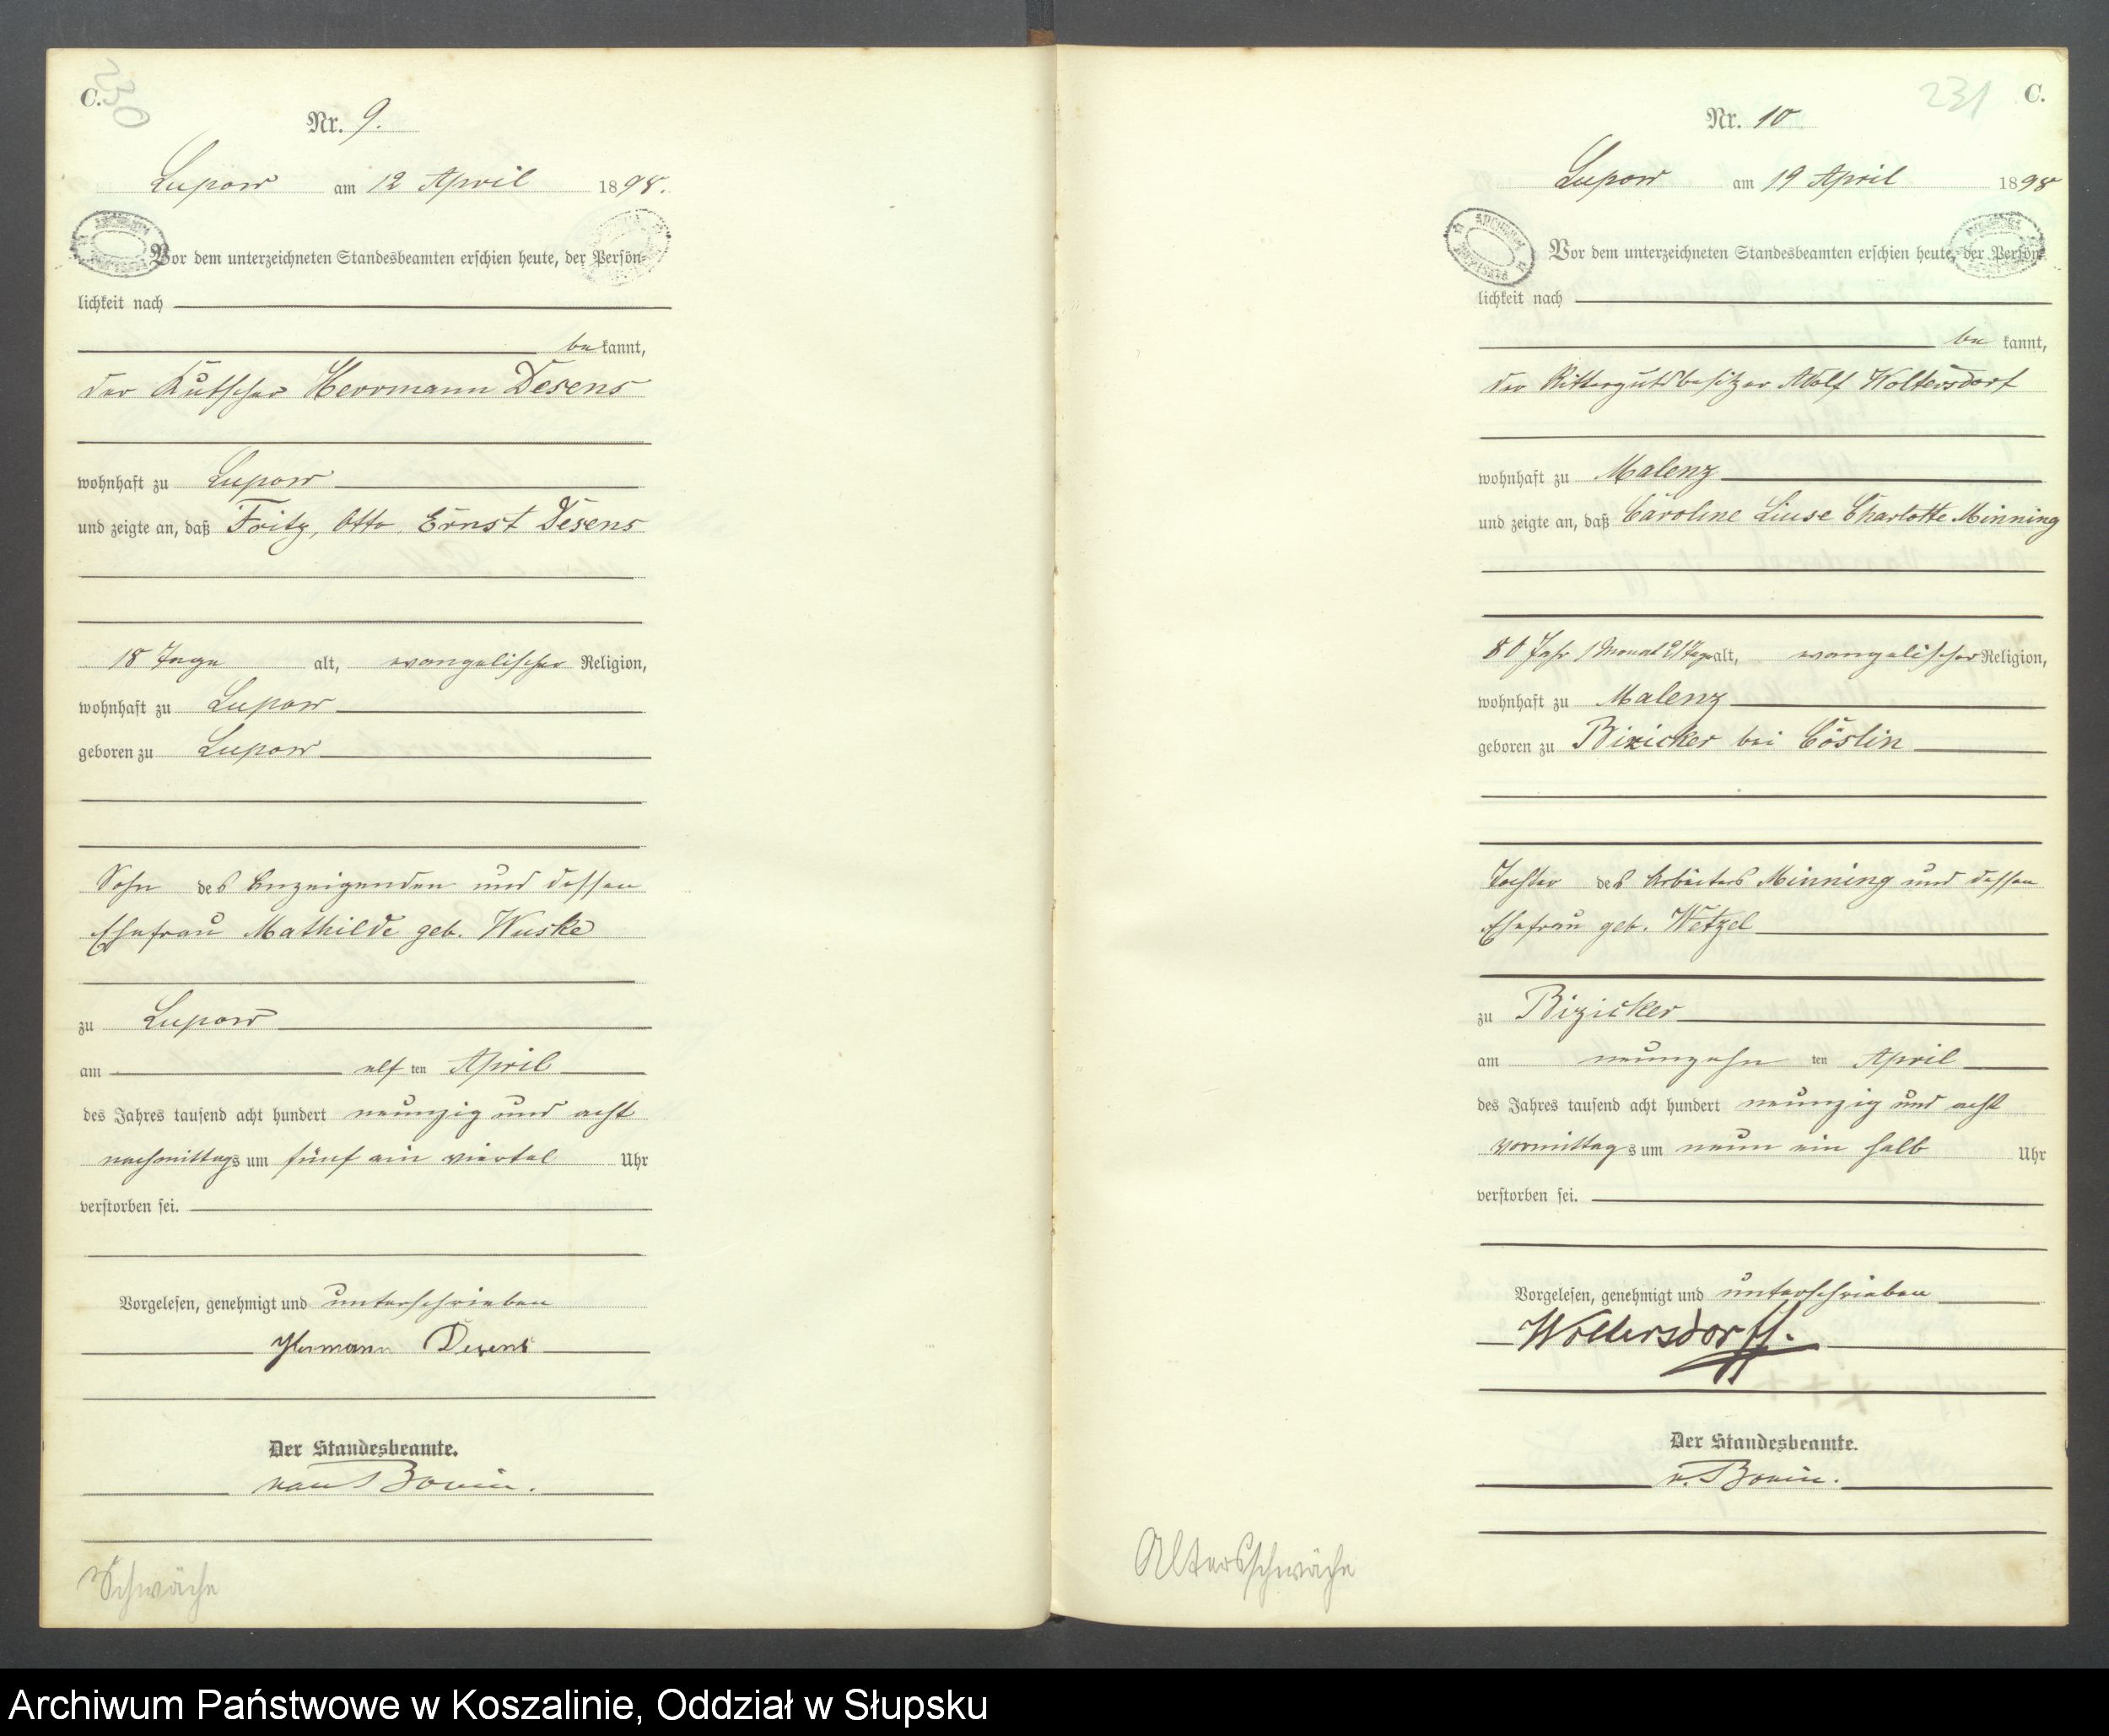 C.
230
Nr. 9.
Lupow am 12 April 1898.
Vor dem unterzeichneten Standesbeamten erschien heute, der Persön-
lichkeit nach
be kannt,
der Kutscher Herrmann Desens
wohnhaft zu Lupow
und zeigte an, daß Fritz, Otto, Ernst Desens
18 Tage alt, evangelischer Religion,
wohnhaft zu Lupow
geboren zu Lupow
Sohn des Anzeigenden und dessen
Ehefrau Mathilde geb. Wuske
zu Lupow
am elf ten April
des Jahres tausend acht hundert neunzig und acht
nachmittags um fünf ein viertel Uhr
verstorben sei.
Vorgelesen, genehmigt und unterschrieben
Hermann Desens
Der Standesbeamte.
Schwäche
231 C.
Nr. 10
Lupow am 19 April 1898
Vor dem unterzeichneten Standesbeamten erschien heute, der Persön-
lichkeit nach
be kannt,
der Rittergutsbesitzer Adolf Woltersdorf
wohnhaft zu Malenz
und zeigte an, daß Caroline Liuse Charlotte Minning
80 Jahr 1 Monat 21 Tage alt, evangelischer Religion,
wohnhaft zu Malenz
geboren zu Bizicker bei Cöslin
Tochter des Arbeiters Minning und dessen
Ehefrau geb. Wetzel
zu Bizicker
am neunzehn ten April
des Jahres tausend acht hundert neunzig und acht
vormittags um neun ein halb Uhr
verstorben sei.
Vorgelesen, genehmigt und unterschrieben
Woltersdorff.
Der Standesbeamte.
Altersschwäche
Archiwum Państwowe w Koszalinie, Oddział w Słupsku